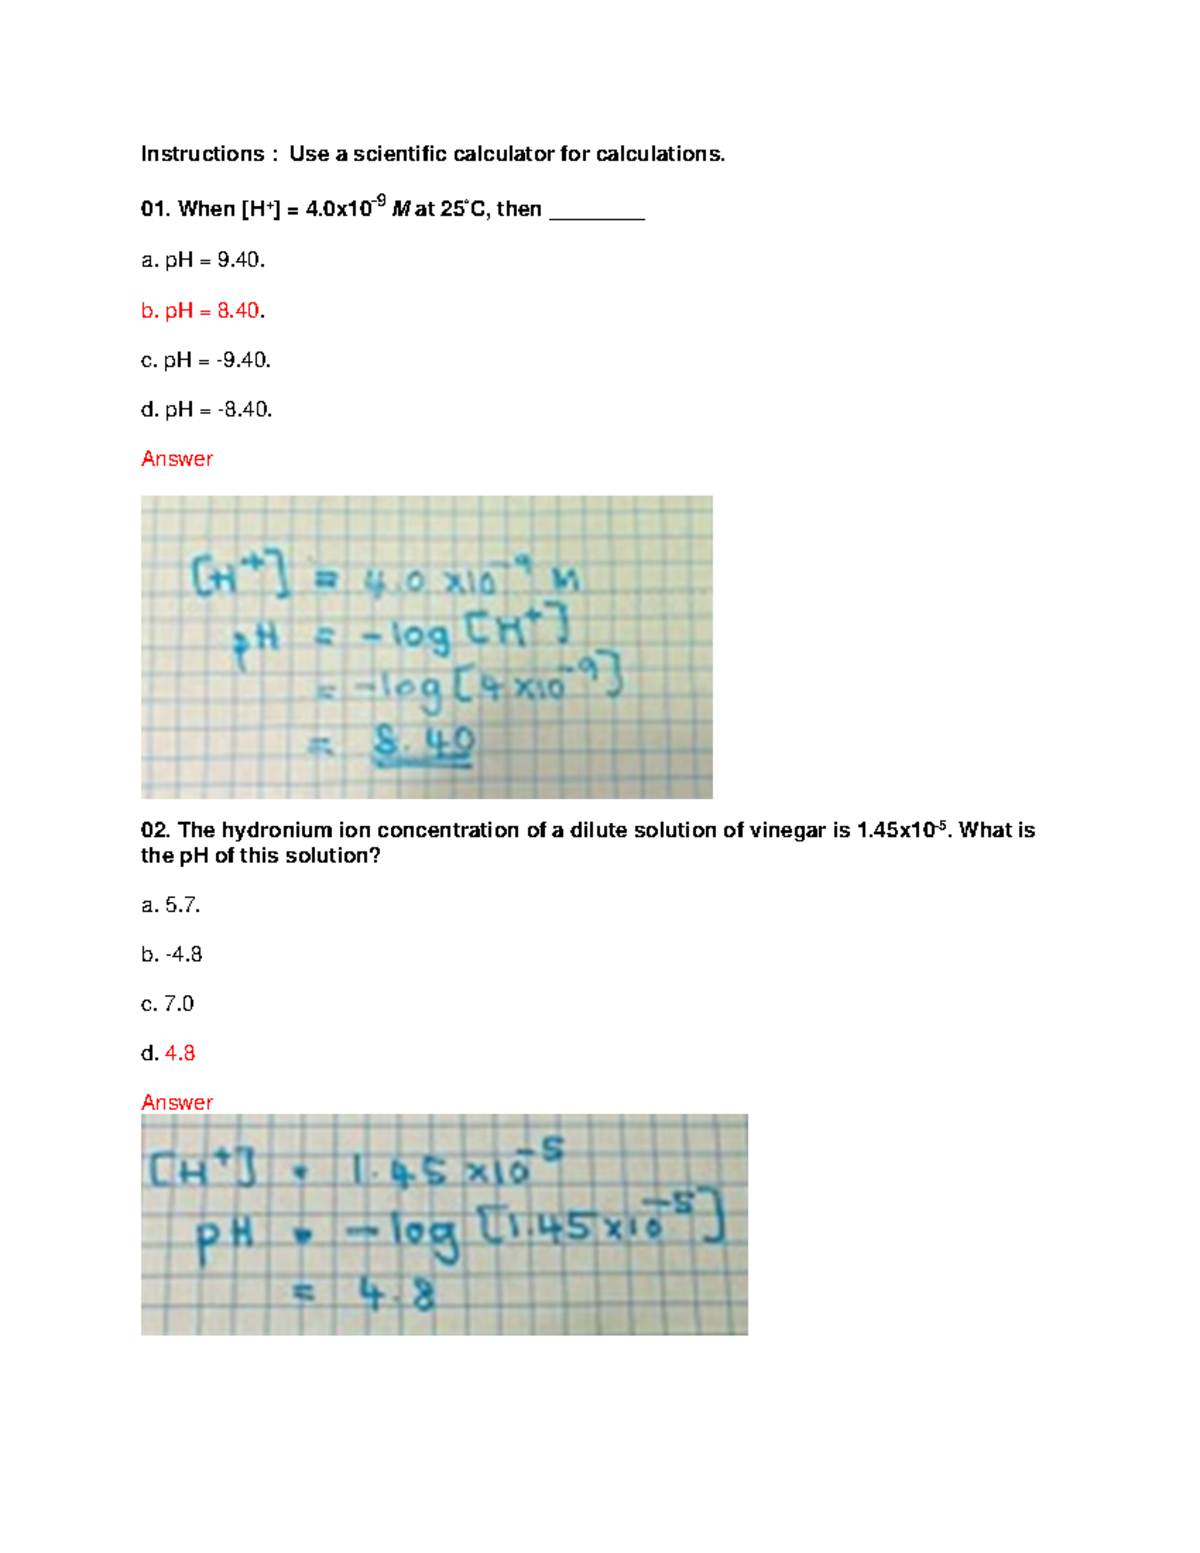 Instructions :  Use a scientific calculator for calculations.
01. When [H⁺] = 4.0x10⁻⁹ M at 25°C, then ________
a. pH = 9.40.
b. pH = 8.40.
c. pH = -9.40.
d. pH = -8.40.
Answer
[H⁺] = 4.0 x10⁻⁹ M
pH = -log [H⁺]
= -log [4 x10⁻⁹]
= 8.40
02. The hydronium ion concentration of a dilute solution of vinegar is 1.45x10⁻⁵. What is
the pH of this solution?
a. 5.7.
b. -4.8
c. 7.0
d. 4.8
Answer
[H⁺] = 1.45 x10⁻⁵
pH = -log [1.45 x10⁻⁵]
= 4.8